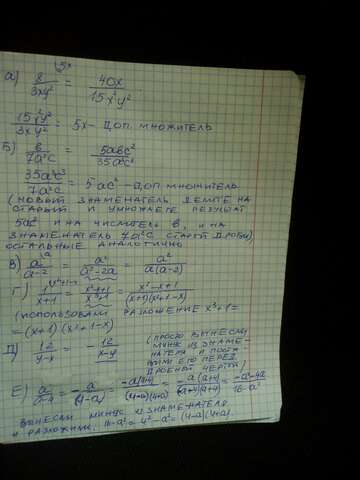 а) 8/3xy² = 40x/15x²y²
15x²y²/3xy² = 5x - доп. множитель
Б) в/7a²c = 5авс²/35a³c³
35a³c³/7a²c = 5ac² - доп множитель
(новый знаменатель делите на
старый и умножаете результат
и на числитель в, и на
знаменатель 7a²c старой дроби)
остальные аналогично
В) a/a-2 = a²/a²-2a = a²/a(a-2)
(использовали разложение x³+1=
=(x+1)(x²+1-x)
Д) 12/y-x = - 12/x-y
(просто вынесли
минус из знаме-
нателя и поста
вили его перед
дробной чертой)
Е)
вынесли минус из знаменателя
и разложили, 16-a²=4²-a²=(4-a)(4+a)